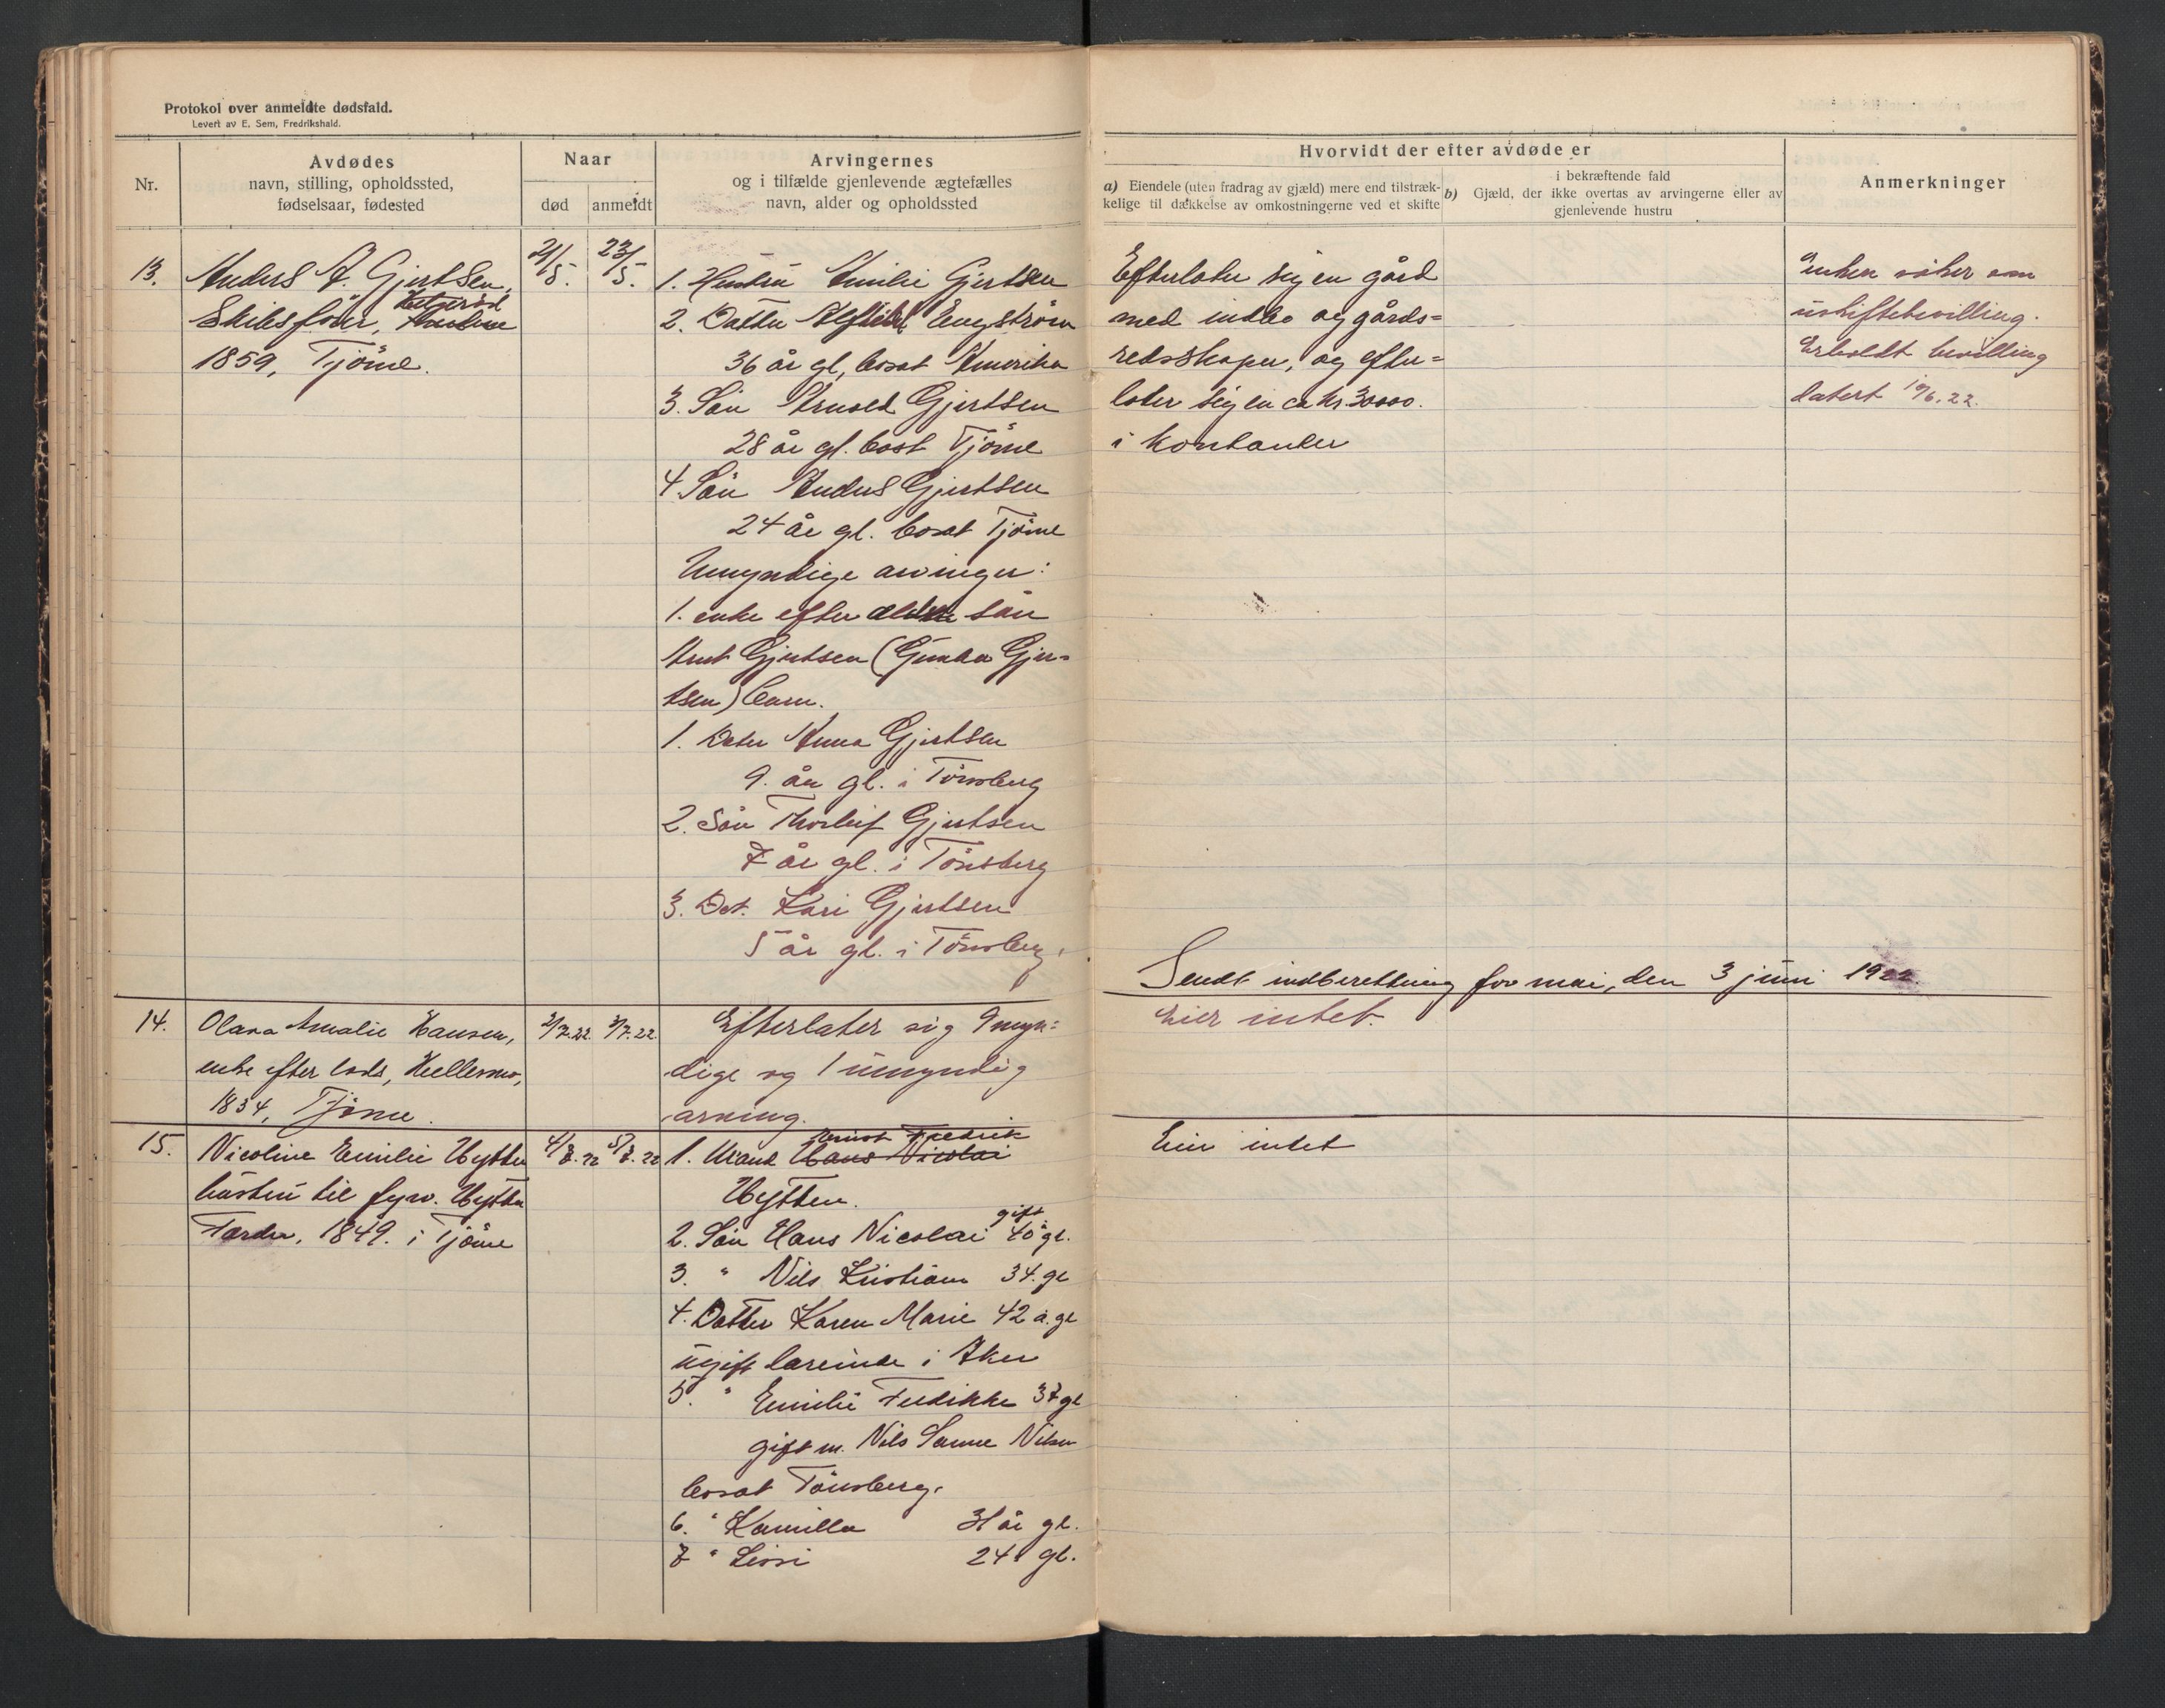 Protokol over anmeldte dødsfald.
Levert av E. Sem, Fredrikshald.
Nr.
Avdødes
navn, stilling, opholdssted,
fødselsaar, fødested
Naar
død
anmeldt
Arvingernes
og i tilfælde gjenlevende ægtefælles
navn, alder og opholdssted
Hvorvidt der efter avdøde er
a) Eiendele (uten fradrag av gjæld) mere end tilstræk-
kelige til dækkelse av omkostningerne ved et skifte
i bekræftende fald
b) Gjæld, der ikke overtas av arvingerne eller av
gjenlevende hustru
Anmerkninger
13.
Anders A. Gjertsen,
Skibsfører,
1859, Tjöme.
21/5.
23/5.
1. Hustru Emilie Gjertsen
2. Datter Engström
36 år gl, bosat Amerika
3. Sön Gjertsen
28 år gl. bost Tjöme
4 Sön Anders Gjertsen
24 år gl. bosat Tjöme
Umyndige arvinger:
1. enke efter sön
Gjertsen (Gunda Gjer=
tsen) barn.
1. Dater Anna Gjertsen
9. år gl. i Tönsberg
2. Sön Thorleif Gjertsen
7 år gl. i Tönsberg
3. Dat. Kari Gjertsen
5 år gl. i Tönsberg.
Efterlater sig en gård
med indbo og gårds=
redsskaper, og efter=
later sig en ca kr. 30000.
i kontanter
enken söker om
uskiftebevilling.
Erholdt bevilling
datert 10/6.22.
Sendt indberetning for mai, den 3 juni 1922.
14.
Olava Amalie Hansen,
enke efter lods,
1834, Tjöme.
2/7.22.
3/7.22
Efterlater sig 9 myn=
dige og 1 umyndig
arving.
Eier intet.
15.
Nicoline Emilie Hytten
hustru til fyrv. Hytten
Færder, 1849. i Tjöme
4/7.22
5/7.22
Fredrik
1. Mand Hans Nicolai
Hytten.
gift
2. Sön Hans Nicolai 40 gl.
3. " Nils Kristian 34. gl
4. Datter Karen Marie 42 å. gl
ugift lærerinde i Aker
5. " Emilie Fredikke 37 gl
gift m. Nils Sanne Nilsen
bosat Tönsberg.
6. " Kamilla 31 år gl.
7 " Lissi 24 gl.
Eier intet